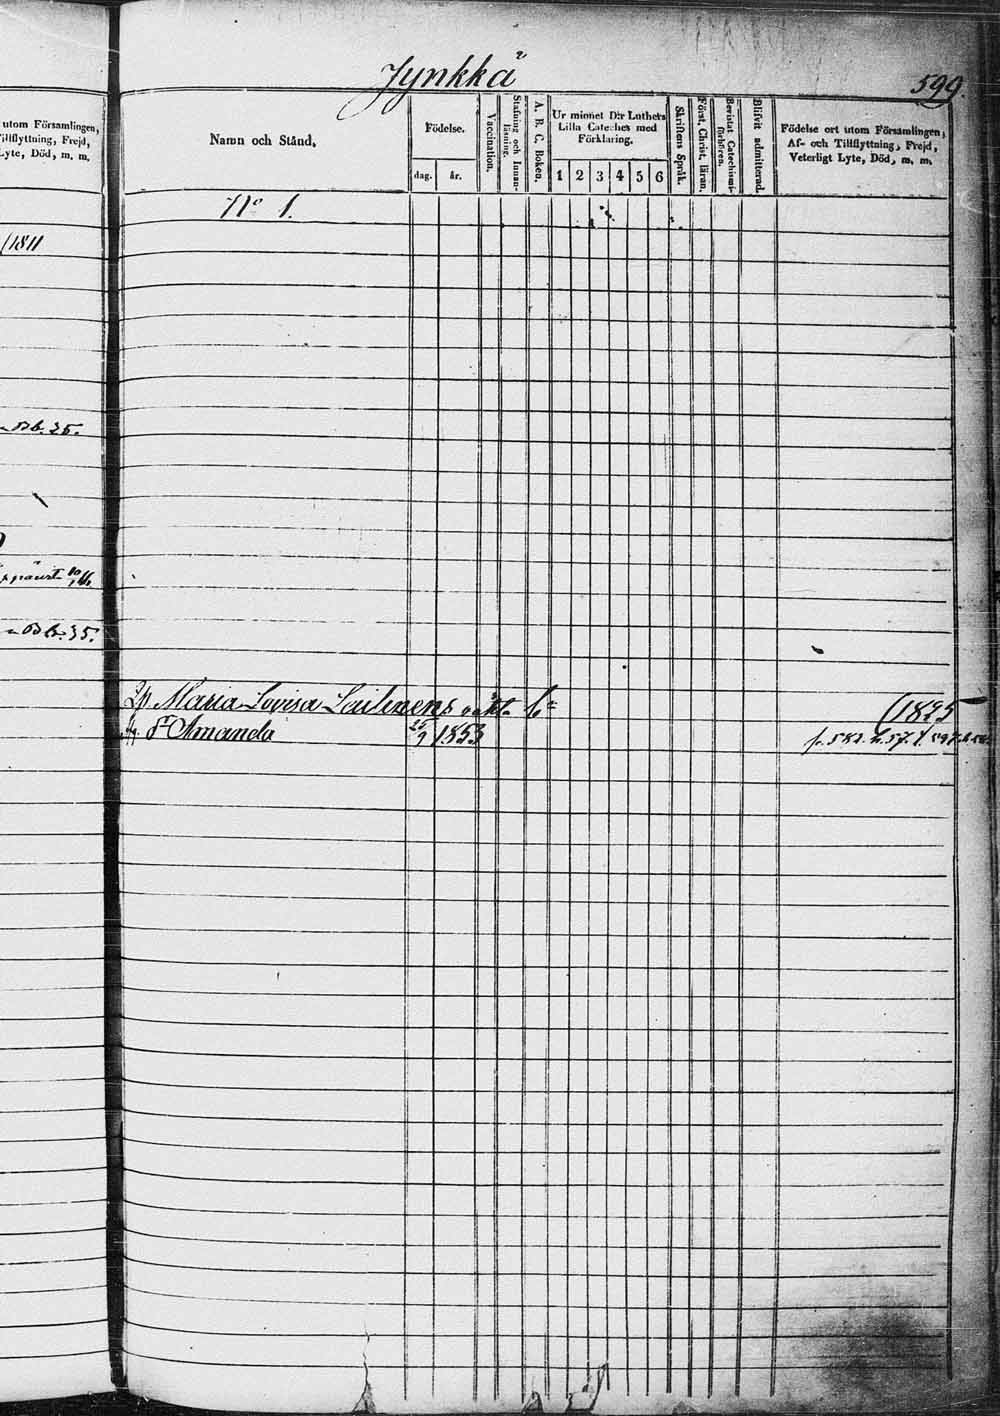 utom Församlingen,
Tillflyttning, Frejd,
Lyte, Död, m. m.
(1811
Bb. 25.
Bb. 35.
Jynkkä
599.
Namn och Stånd,
Födelse.
dag. år.
Vaccination.
Stafning och Innan-
läsning.
A. B. C. Boken.
Ur minnet D:r Luthers
Lilla Cateches med
Förklaring.
1 2 3 4 5 6
Skriftens Språk.
Först. Christ. läran.
Bevistat Catechismi-
förhören.
Blifvit admitterad.
Födelse ort utom Församlingen,
Af- och Tillflyttning, Frejd,
Veterligt Lyte, Död, m. m.
No 1.
Maria Lovisa oäkta b:n (1825
Amanda 25/9 1853 f. 582. h. 57. f. 597.